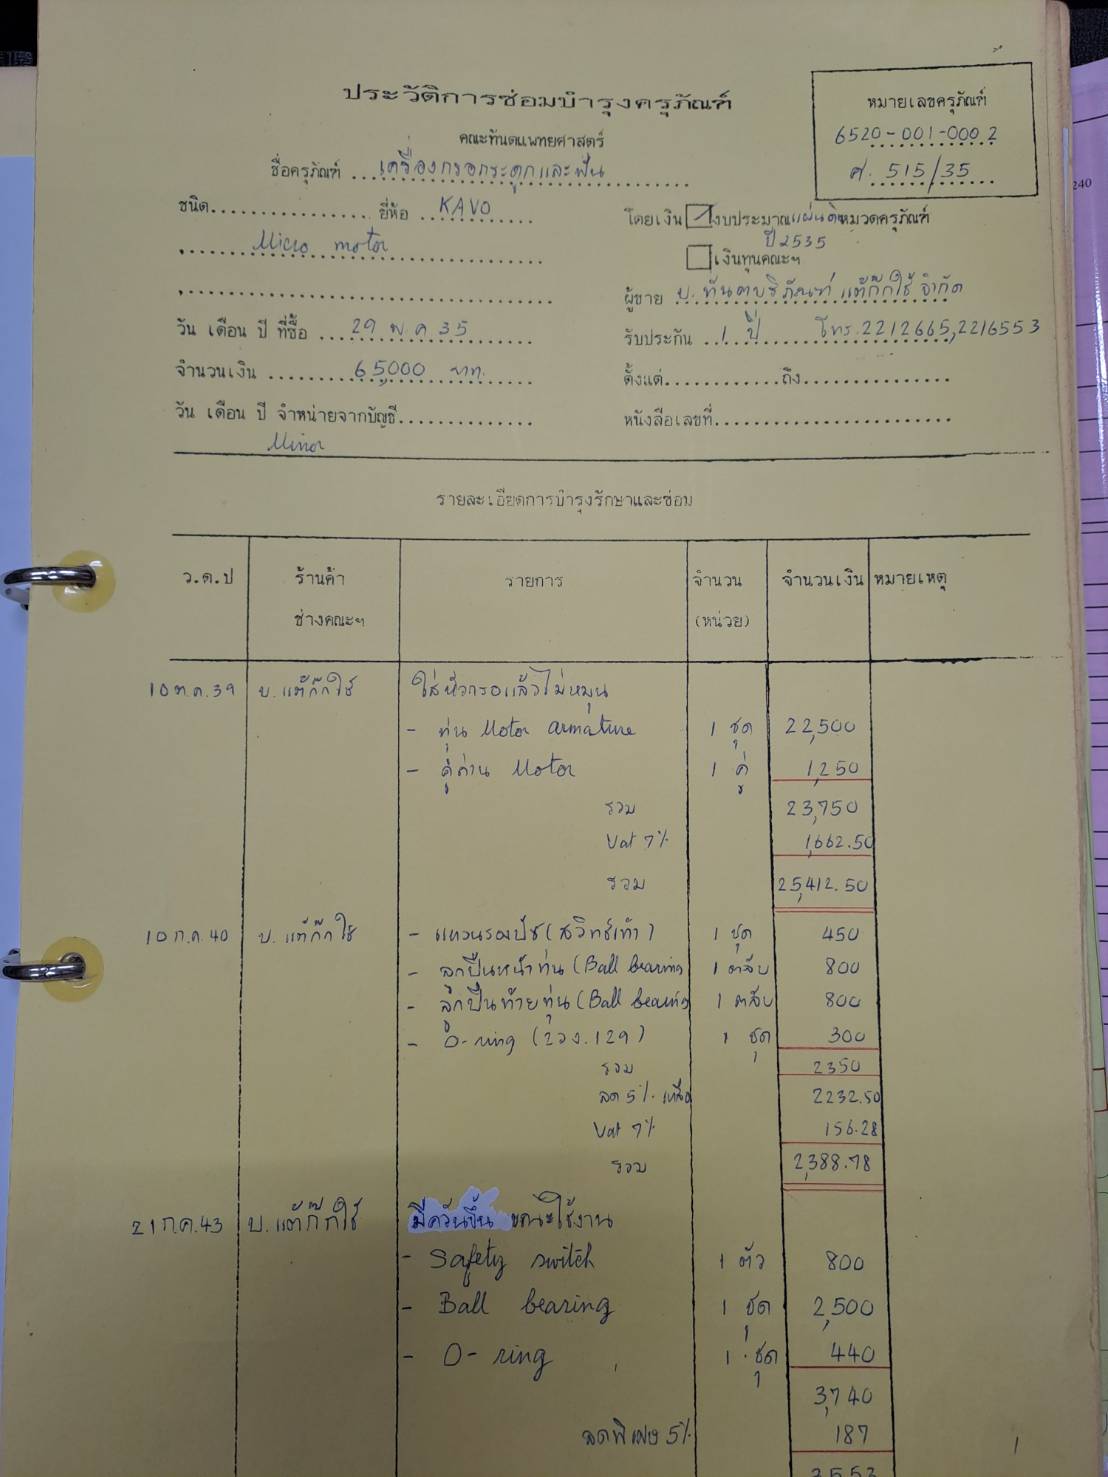 ประวัติการซ่อมบำรุงครุภัณฑ์
คณะทันตแพทยศาสตร์
หมายเลขครุภัณฑ์
6520-001-000.2
ศ. 515/35
240
ชื่อครุภัณฑ์ ...เครื่องกรอกระดูกและฟัน
ชนิด................. ยี่ห้อ ..KAVO
Micro motor
โดยเงิน งบประมาณแผ่นดินหมวดครุภัณฑ์
ปี 2535
เงินทุนคณะฯ
ผู้ขาย บ. ทันตบริภัณฑ์ แต้กั๊กใช้ จำกัด
วัน เดือน ปี ที่ซื้อ ...29 พ.ค. 35
รับประกัน ..1 ปี โทร. 2212665, 2216553
จำนวนเงิน ........65,000 บาท.
ตั้งแต่..............ถึง.................
วัน เดือน ปี จำหน่ายจากบัญชี..............
หนังสือเลขที่...........................
Minor
รายละเอียดการบำรุงรักษาและซ่อม
ว.ด.ป ร้านค้า รายการ จำนวน จำนวนเงิน หมายเหตุ
ช่างคณะฯ (หน่วย)
10 ต.ค. 39 บ. แต้กั๊กใช้ ใส่หัวกรอแล้วไม่หมุน
- ทุ่น Motor armature 1 ชุด 22,500
- คู่ถ่าน Motor 1 คู่ 1,250
รวม 23,750
Vat 7% 1,662.50
รวม 25,412.50
10 ก.ค. 40 บ. แต้กั๊กใช้ - แหวนรองบัช (สวิทช์เท้า) 1 ชุด 450
- ลูกปืนหน้าทุ่น (Ball bearing) 1 ตลับ 800
- ลูกปืนท้ายทุ่น (Ball bearing) 1 ตลับ 800
- O-ring (2วง. 129) 1 ชุด 300
รวม 2350
ลด 5% เหลือ 2232.50
Vat 7% 156.28
รวม 2,388.78
21 ก.ค. 43 บ. แต้กั๊กใช้ มีควันขึ้น ขณะใช้งาน
- Safety switch 1 ตัว 800
- Ball bearing 1 ชุด 2,500
- O-ring 1 ชุด 440
3,740
ลดพิเศษ 5% 187
3553
1